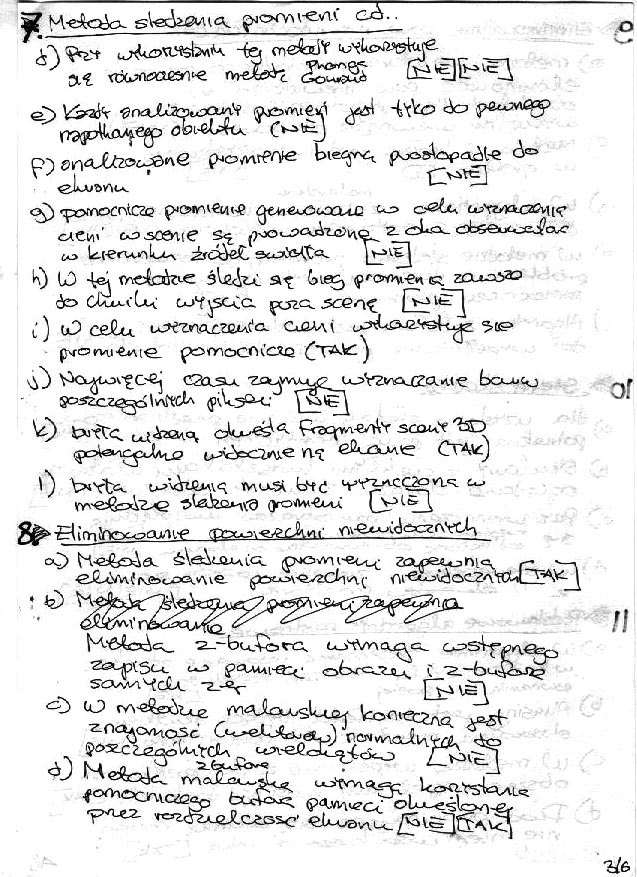 7. Metoda śledzenia promieni cd..
d) Przy wykorzystaniu tej metody wykorzystuje
się równocześnie metodę Phonga Gourauda [NIE] [NIE]
e) Każdy analizowany promień jest tylko do pewnego
napotkanego obiektu (NIE)
f) analizowane promienie biegną prostopadle do
ekranu [NIE]
g) pomocnicze promienie generowane w celu wyznaczenia
cieni w scenie są prowadzone z oka obserwatora
w kierunku źródeł światła [NIE]
h) W tej metodzie śledzi się bieg promienia zawsze
do chwili wyjścia poza scenę [NIE]
i) w celu wyznaczenia cieni wykorzystuje się
promienie pomocnicze (TAK)
j) Najwięcej czasu zajmuje wyznaczanie barw
poszczególnych pikseli [NIE]
k) bryła widzenia określa fragmenty sceny 3D
potencjalnie widoczne na ekranie (TAK)
l) bryła widzenia musi być wyznaczona w
metodzie śledzenia promieni [NIE]
8. Eliminowanie powierzchni niewidocznych
a) Metoda śledzenia promieni zapewnia
eliminowanie powierzchni niewidocznych [TAK]
b) Metoda śledzenia promieni zapewnia
eliminowanie
Metoda z-bufora wymaga wstępnego
zapisu w pamięci obrazu i z-bufora
samych zer [NIE]
c) w metodzie malarskiej konieczna jest
znajomość (wektorów) normalnych do
poszczególnych wielokątów [NIE]
z bufora
d) Metoda malarska wymaga korzystania
pomocniczego bufora pamięci określonej
przez rozdzielczość ekranu [NIE] [TAK]
3/6